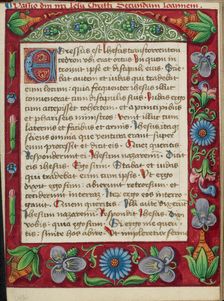 Passio dni nri Jesu Christi Secundum Joannem
Egressus est Jhesus trans torrentem
cedron ubi erat ortus In quem in
troivit ipse et discipuli eius Sci
ebat autem et iudas qui tradebat
eum locum quia frequenter ihesus illuc
conveniebat cum discipulis suis Iudas ergo
cum accepisset cohortem et a pontificibus
et phariseis ministros venit illuc cum
laternis et facibus et armis Jhesus itaq
sciens omnia que ventura erant super
eum processit et dixit eis Quem queritis
Responderunt ei Jhesum nazarenum Dicit
eis ihesus Ego sum Stabat et iudas
qui tradebat eum cum ipsis Ut ergo
dixit ego sum abierunt retrorsum et
ceciderunt in terram Iterum ergo inter
rogavit Quem queritis Illi autem dixerunt
Jhesum nazarenum Respondit ihesus Dixi
vobis quia ego sum Si ergo me queri
tis sinite hos abire Ut impleretur sermo